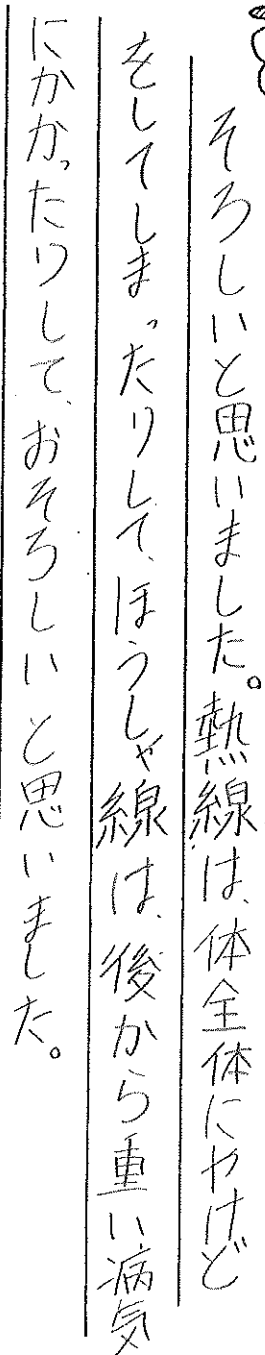 そろしいと思いました。熱線は、体全体にやけど
をしてしまったりして、ほうしゃ線は、後から重い病気
にかかったりして、おそろしいと思いました。